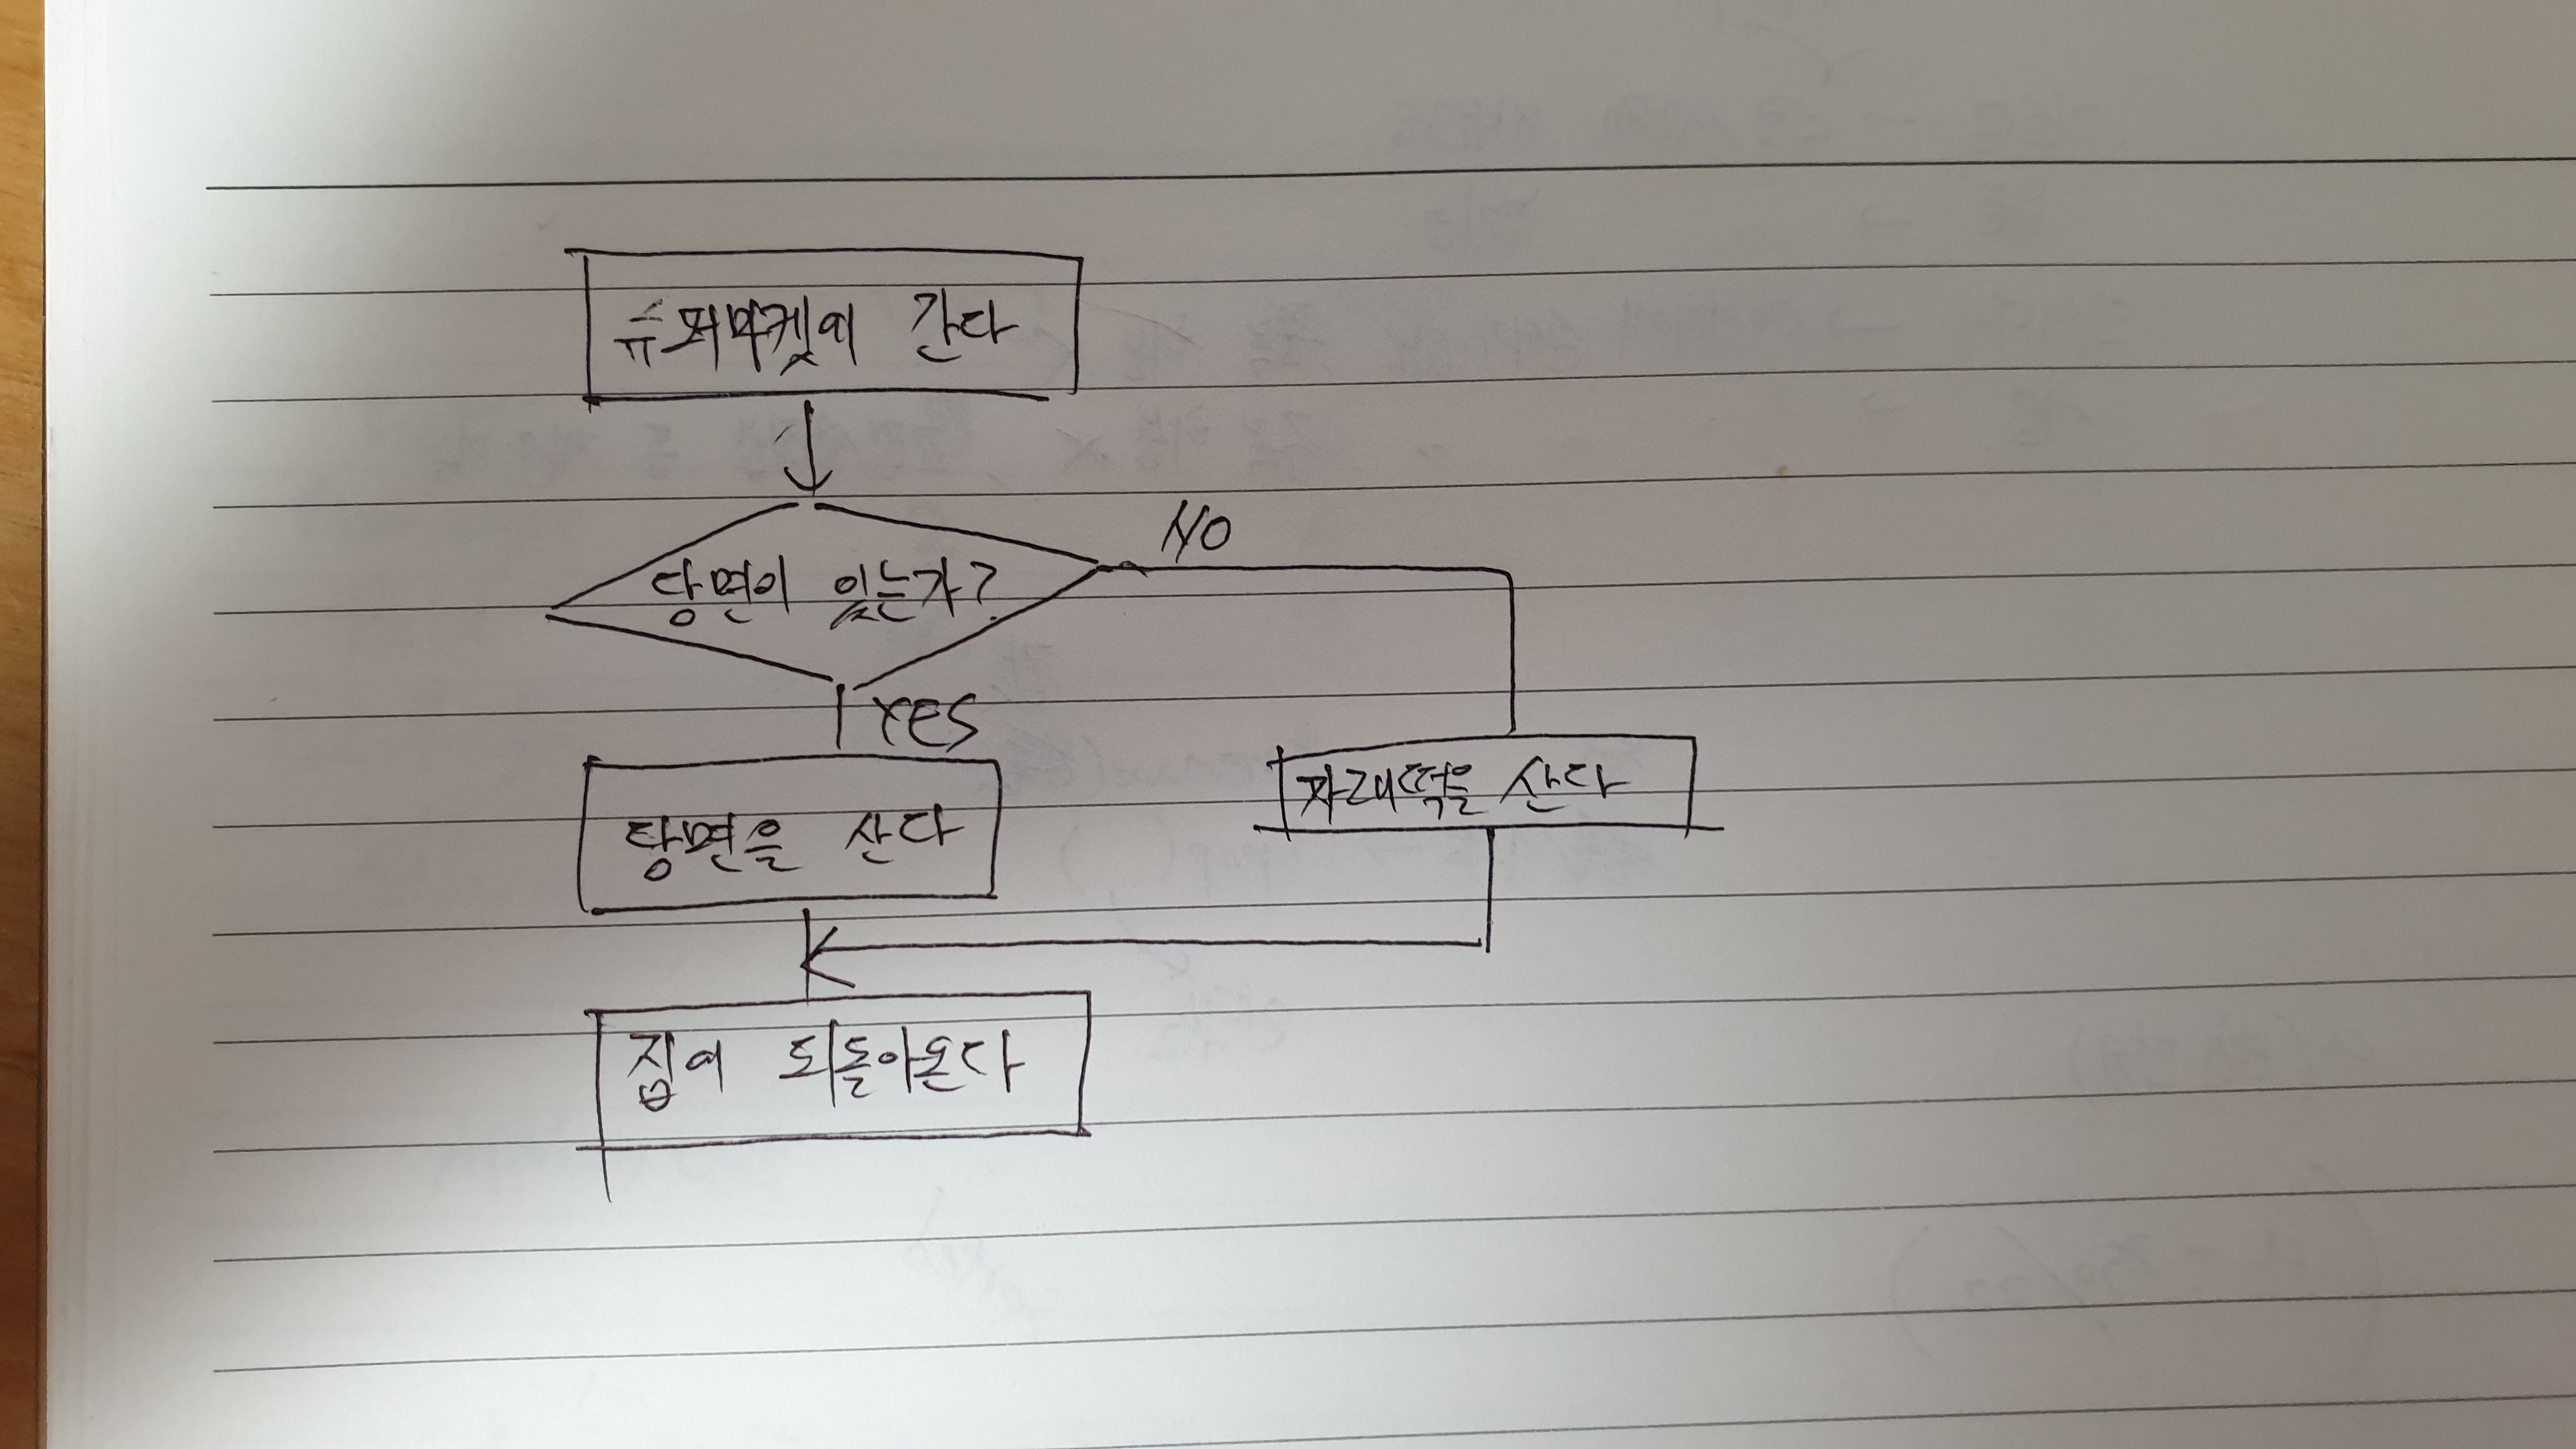 슈퍼마켓에 간다
당면이 있는가?
NO
YES
당면을 산다
가래떡을 산다
집에 되돌아온다